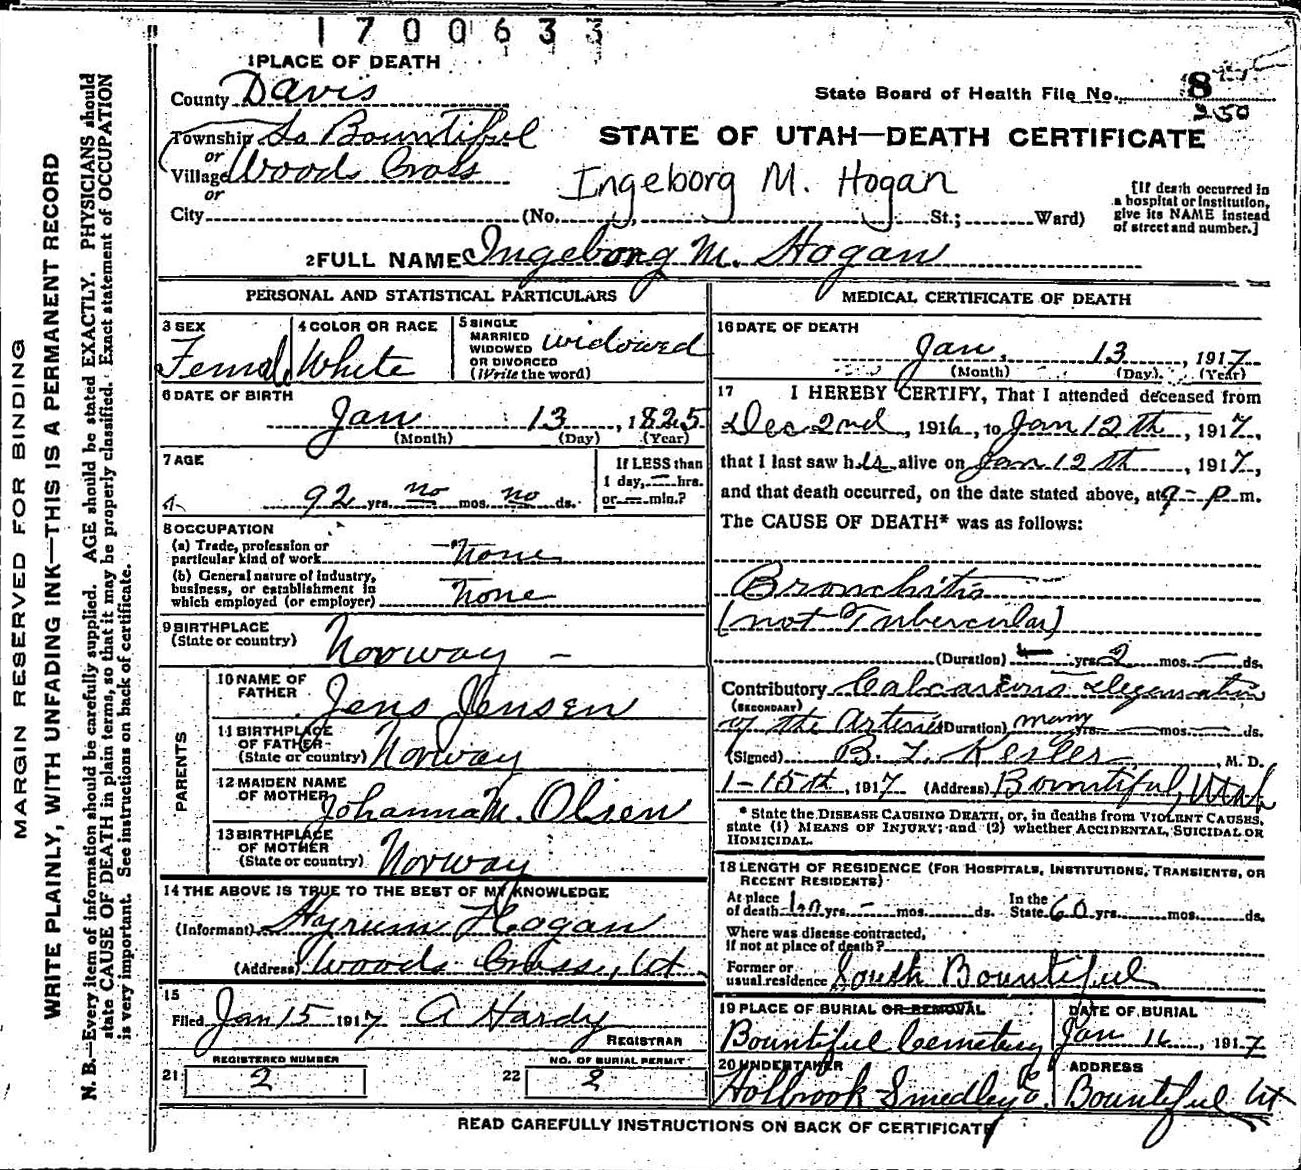 1700633
1 PLACE OF DEATH
County Davis
Township So Bountiful
or
Village Woods Cross
or
City (No. , St.; Ward)
State Board of Health File No. 8
250
STATE OF UTAH—DEATH CERTIFICATE
Ingeborg M. Hogan
[If death occurred in
a hospital or institution,
give its NAME instead
of street and number.]
2 FULL NAME Ingeborg M. Hogan
PERSONAL AND STATISTICAL PARTICULARS
3 SEX
Femal
4 COLOR OR RACE
White
5 SINGLE
MARRIED
WIDOWED
OR DIVORCED
(Write the word)
widowed
6 DATE OF BIRTH
Jan 13, 1825
(Month) (Day) (Year)
7 AGE
92 yrs. no mos. no ds.
If LESS than
1 day, — hrs.
or — min.?
8 OCCUPATION
(a) Trade, profession or
particular kind of work None
(b) General nature of industry,
business, or establishment in
which employed (or employer) None
9 BIRTHPLACE
(State or country) Norway –
PARENTS
10 NAME OF
FATHER Jens Jensen
11 BIRTHPLACE
OF FATHER
(State or country) Norway
12 MAIDEN NAME
OF MOTHER Johanna M. Olsen
13 BIRTHPLACE
OF MOTHER
(State or country) Norway
14 THE ABOVE IS TRUE TO THE BEST OF MY KNOWLEDGE
(Informant) Hyrum Hogan
(Address) Woods Cross, Ut
15
Filed Jan 15 1917 A Hardy
REGISTRAR
REGISTERED NUMBER
21 2
NO. OF BURIAL PERMIT
22 2
MEDICAL CERTIFICATE OF DEATH
16 DATE OF DEATH
Jan. 13, 1917
(Month) (Day) (Year)
17 I HEREBY CERTIFY, That I attended deceased from
Dec 2nd, 1916, to Jan 12th, 1917,
that I last saw her alive on Jan 12th, 1917,
and that death occurred, on the date stated above, at 9-P m.
The CAUSE OF DEATH* was as follows:
Bronchitis
(not Tubercular)
(Duration) — yrs. 2 mos. — ds.
Contributory Calcareous degeneration
(SECONDARY)
of the Arteries (Duration) many yrs. — mos. — ds.
(Signed) B. L. Kesler, M. D.
1-15th, 1917 (Address) Bountiful, Utah
* State the DISEASE CAUSING DEATH, or, in deaths from VIOLENT CAUSES,
state (1) MEANS OF INJURY; and (2) whether ACCIDENTAL, SUICIDAL OR
HOMICIDAL.
18 LENGTH OF RESIDENCE (FOR HOSPITALS, INSTITUTIONS, TRANSIENTS, OR
RECENT RESIDENTS)
At place
of death 60 yrs. – mos. ds.
In the
State 60 yrs. mos. ds.
Where was disease contracted,
if not at place of death?
Former or
usual residence South Bountiful
19 PLACE OF BURIAL OR REMOVAL
Bountiful Cemetery
DATE OF BURIAL
Jan 16, 1917
20 UNDERTAKER
Holbrook Smedley
ADDRESS
Bountiful Ut
READ CAREFULLY INSTRUCTIONS ON BACK OF CERTIFICATE
MARGIN RESERVED FOR BINDING
WRITE PLAINLY, WITH UNFADING INK—THIS IS A PERMANENT RECORD
N. B.—Every item of information should be carefully supplied. AGE should be stated EXACTLY. PHYSICIANS should
state CAUSE OF DEATH in plain terms, so that it may be properly classified. Exact statement of OCCUPATION
is very important. See instructions on back of certificate.